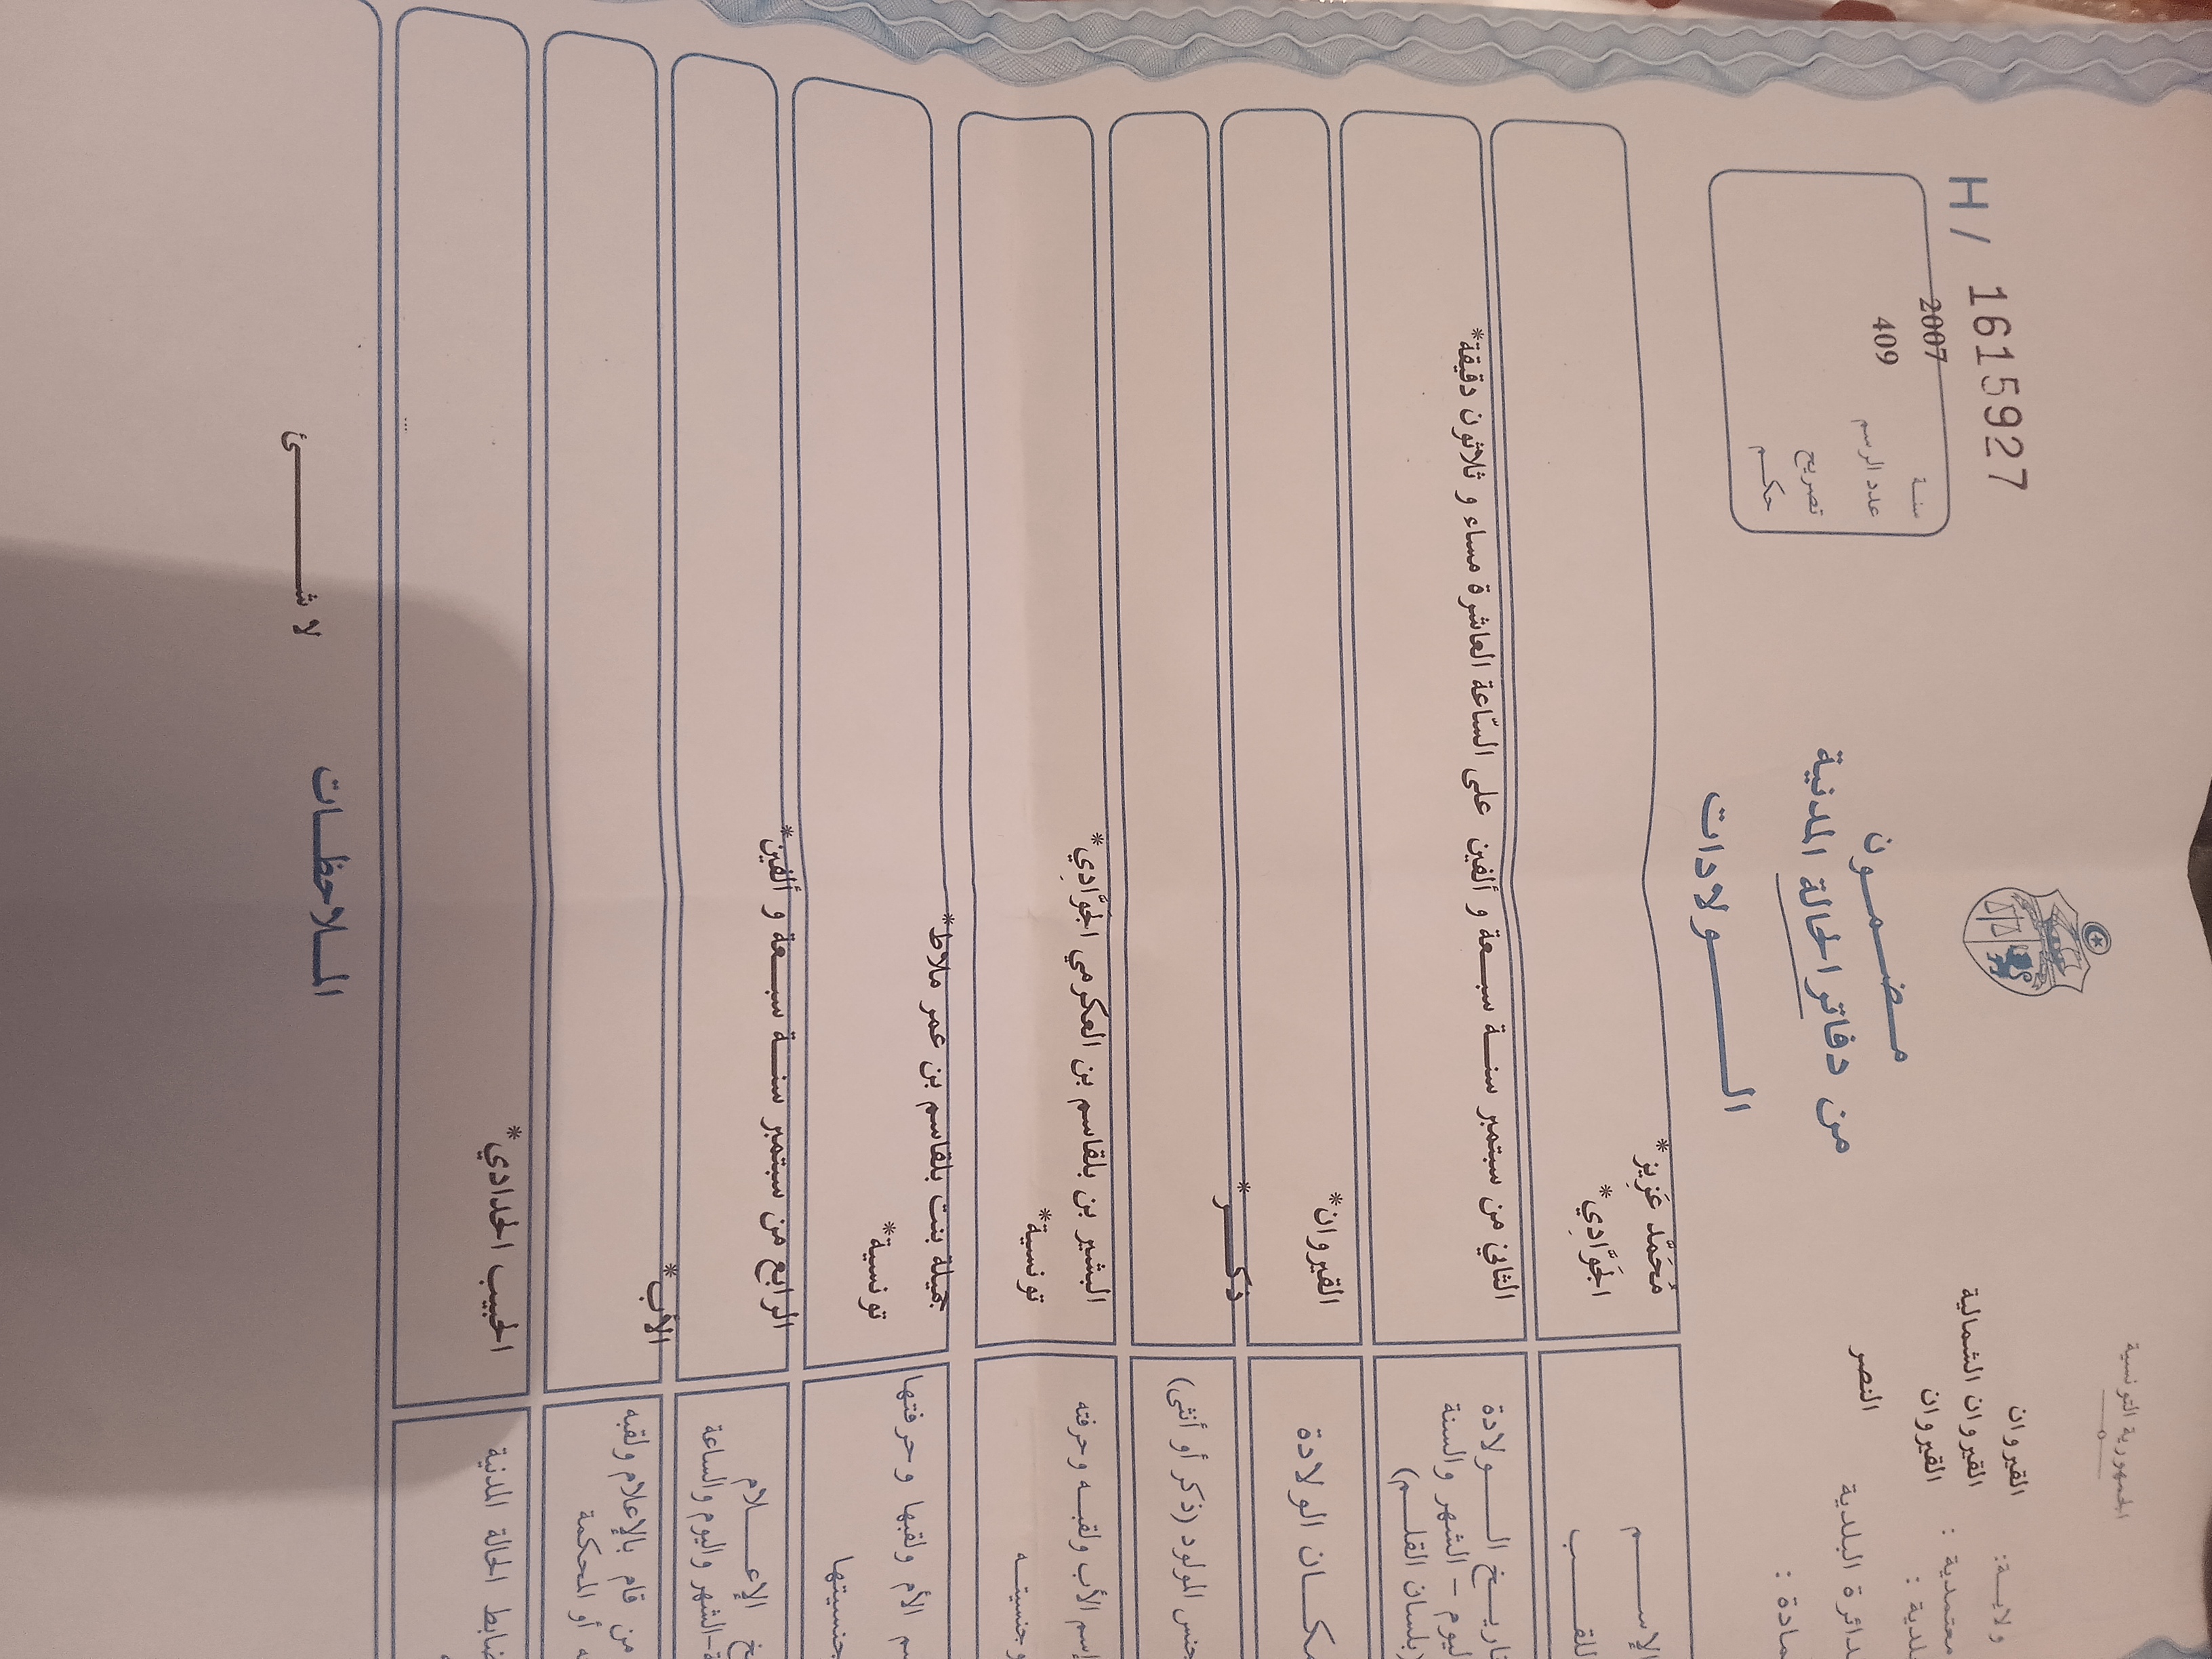 الجمهورية التونسية
ولايــة: القيروان
معتمدية : القيروان الشمالية
بلدية : القيروان
دائرة البلدية النصر
عمادة :
H/ 1615927
سنة 2007
عدد الرسم 409
تصريح
حكم
مضمون
من دفاتر الحالة المدنية
الولادات
الإسم مُحَمَّد عَزِيز*
اللقب الجَوَّادِي*
تاريخ الولادة الثاني من سبتمبر سنة سبعة و ألفين على السّاعة العاشرة مساء و ثلاثون دقيقة*
اليوم – الشهر والسنة
(بلسان القلم)
مكان الولادة القيروان*
جنس المولود (ذكر أو أنثى) ذكر*
إسم الأب ولقبه وحرفته البشير بن بلقاسم بن العكرمي الجَوَّادِي*
وجنسيته تونسية*
إسم الأم ولقبها وحرفتها جميلة بنت بلقاسم بن عمر ملاط*
وجنسيتها تونسية*
الإعلام الرابع من سبتمبر سنة سبعة و ألفين*
الشهر واليوم والساعة
من قام بالإعلام ولقبه الأب*
أو المحكمة
ضابط الحالة المدنية الحبيب الحدادي*
الملاحظات
لا شئ